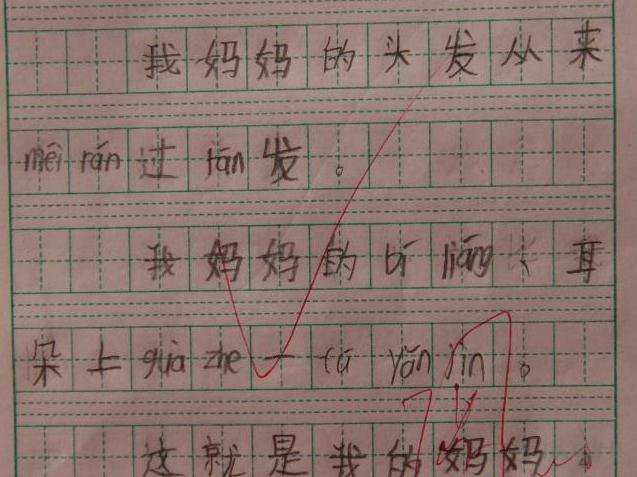 我妈妈的头发从来
méi rán过 rán发。
我妈妈的bí liáng 耳
朵上guà zhe一 fù yǎn jìn。
这就是我的妈妈